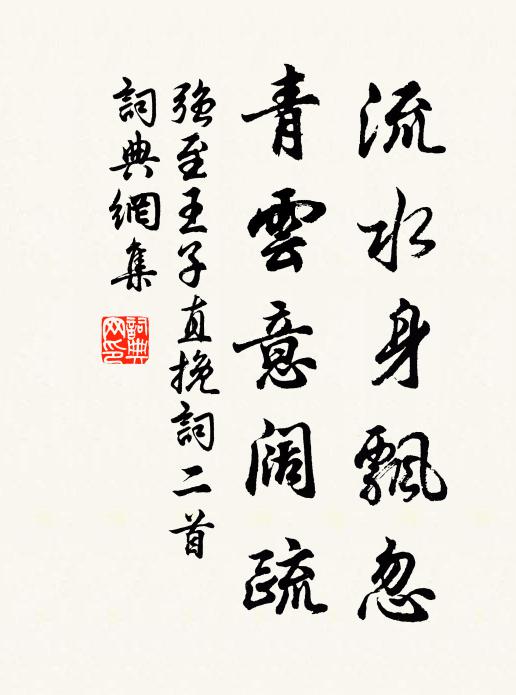 流水身飄忽
青雲意阔疏
強至王子直挽詞二首
詞典網集
詞典網印